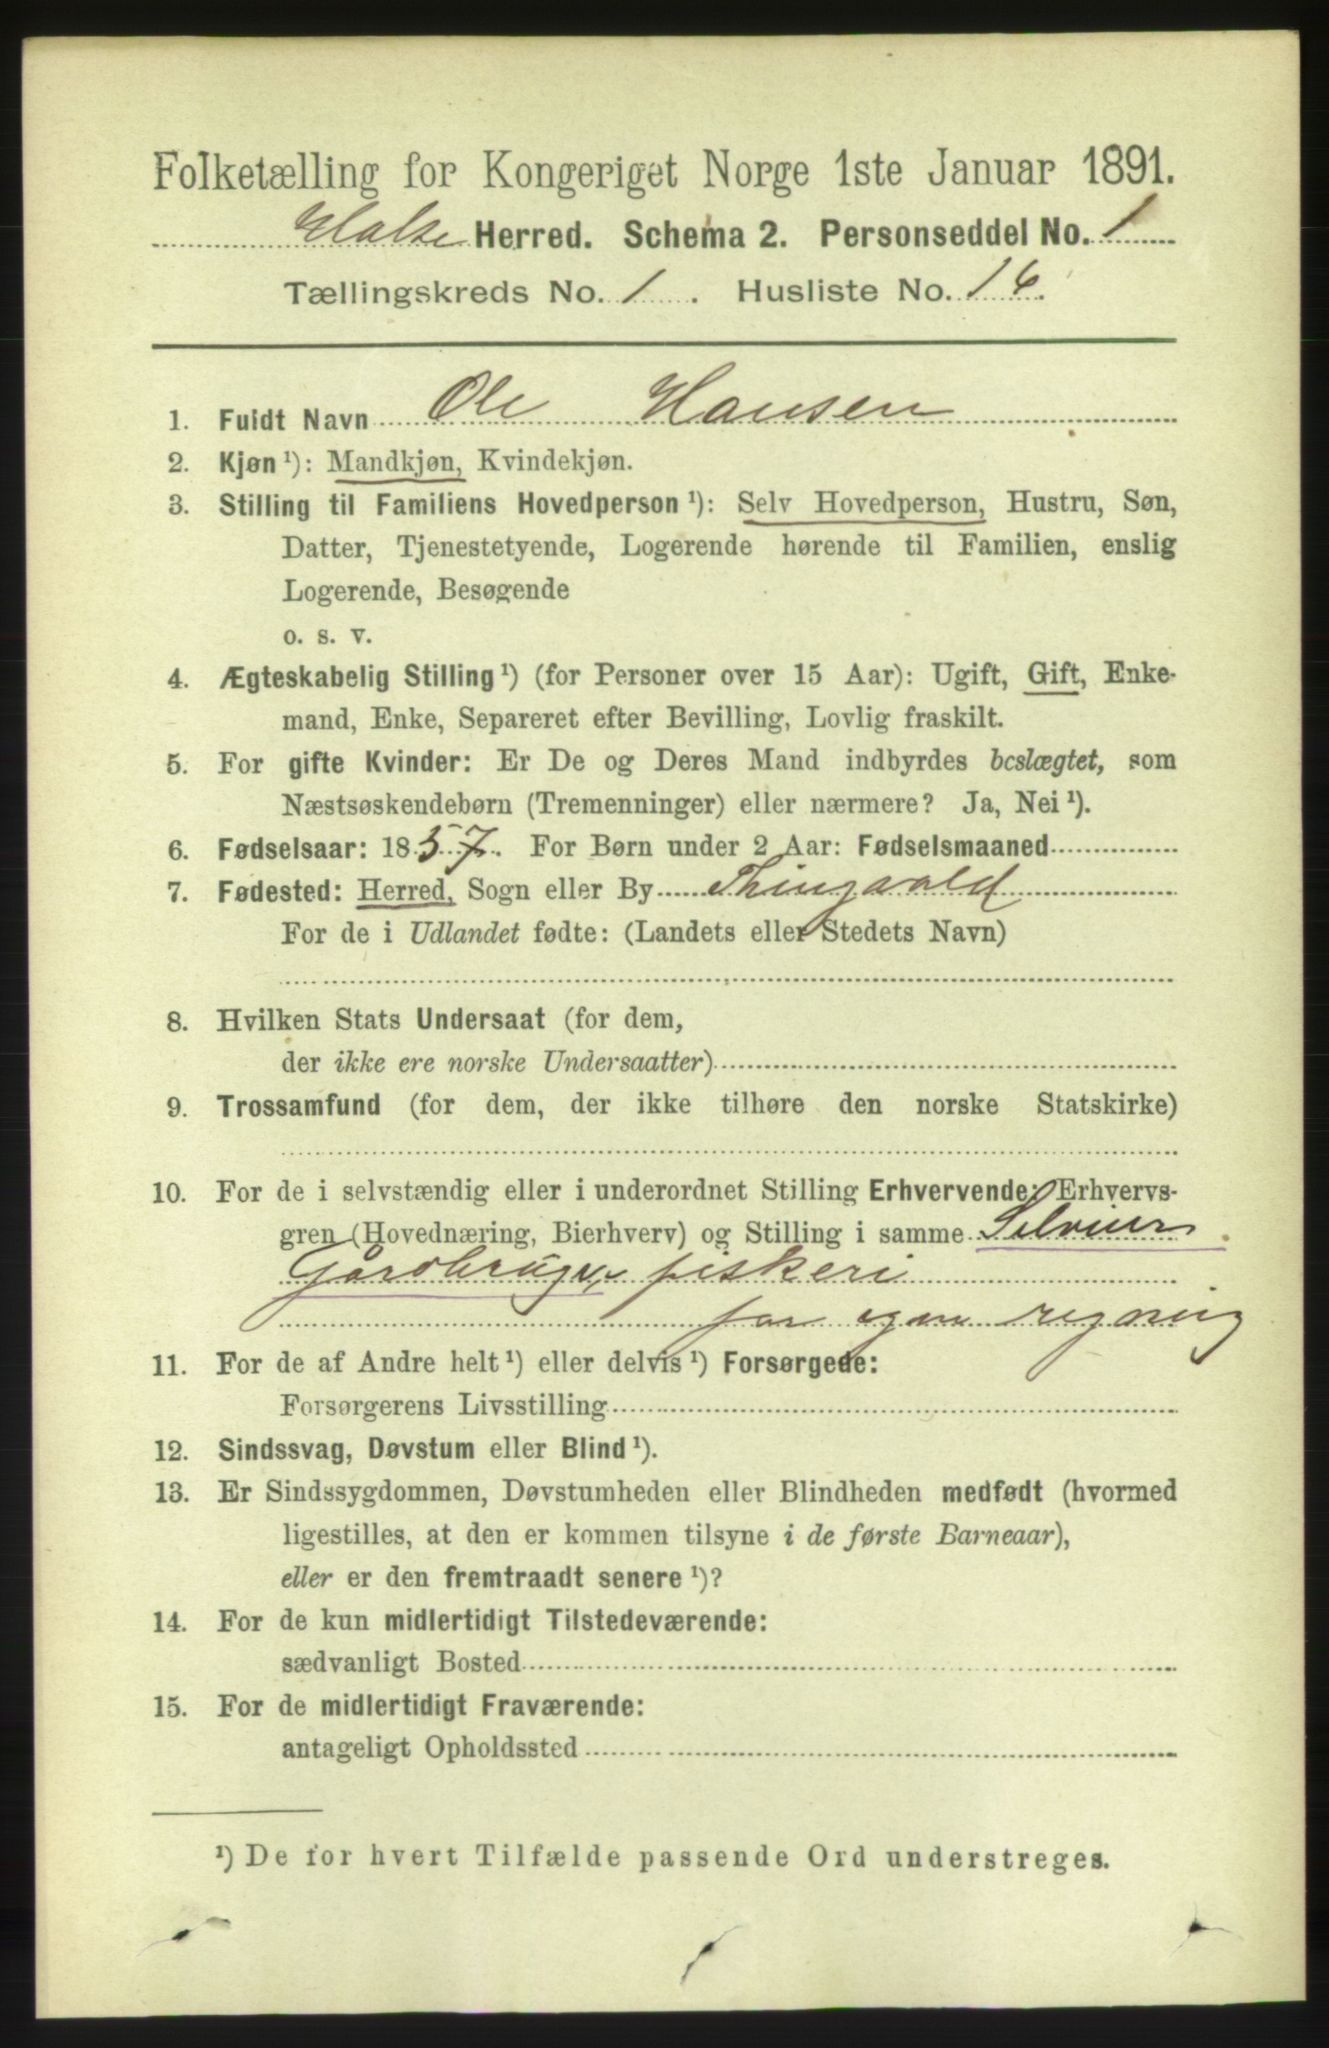 Folketælling for Kongeriget Norge 1ste Januar 1891.
Halse Herred. Schema 2. Personseddel No. 1
Tællingskreds No. 1. Husliste No. 16.
1. Fuldt Navn Ole Hansen
2. Kjøn ¹): Mandkjøn, Kvindekjøn.
3. Stilling til Familiens Hovedperson ¹): Selv Hovedperson, Hustru, Søn,
Datter, Tjenestetyende, Logerende hørende til Familien, enslig
Logerende, Besøgende
o. s. v.
4. Ægteskabelig Stilling ¹) (for Personer over 15 Aar): Ugift, Gift, Enke-
mand, Enke, Separeret efter Bevilling, Lovlig fraskilt.
5. For gifte Kvinder: Er De og Deres Mand indbyrdes beslægtet, som
Næstsøskendebørn (Tremenninger) eller nærmere? Ja, Nei ¹).
6. Fødselsaar: 1857. For Børn under 2 Aar: Fødselsmaaned
7. Fødested: Herred, Sogn eller By Thingvold
For de i Udlandet fødte: (Landets eller Stedets Navn)
8. Hvilken Stats Undersaat (for dem,
der ikke ere norske Undersaatter)
9. Trossamfund (for dem, der ikke tilhøre den norske Statskirke)
10. For de i selvstændig eller i underordnet Stilling Erhvervende: Erhvervs-
gren (Hovednæring, Bierhverv) og Stilling i samme Selveier
Gårdbruger, fiskeri
for egen regning
11. For de af Andre helt ¹) eller delvis ¹) Forsørgede:
Forsørgerens Livsstilling
12. Sindssvag, Døvstum eller Blind ¹).
13. Er Sindssygdommen, Døvstumheden eller Blindheden medfødt (hvormed
ligestilles, at den er kommen tilsyne i de første Barneaar),
eller er den fremtraadt senere ¹)?
14. For de kun midlertidigt Tilstedeværende:
sædvanligt Bosted
15. For de midlertidigt Fraværende:
antageligt Opholdssted
¹) De for hvert Tilfælde passende Ord understreges.